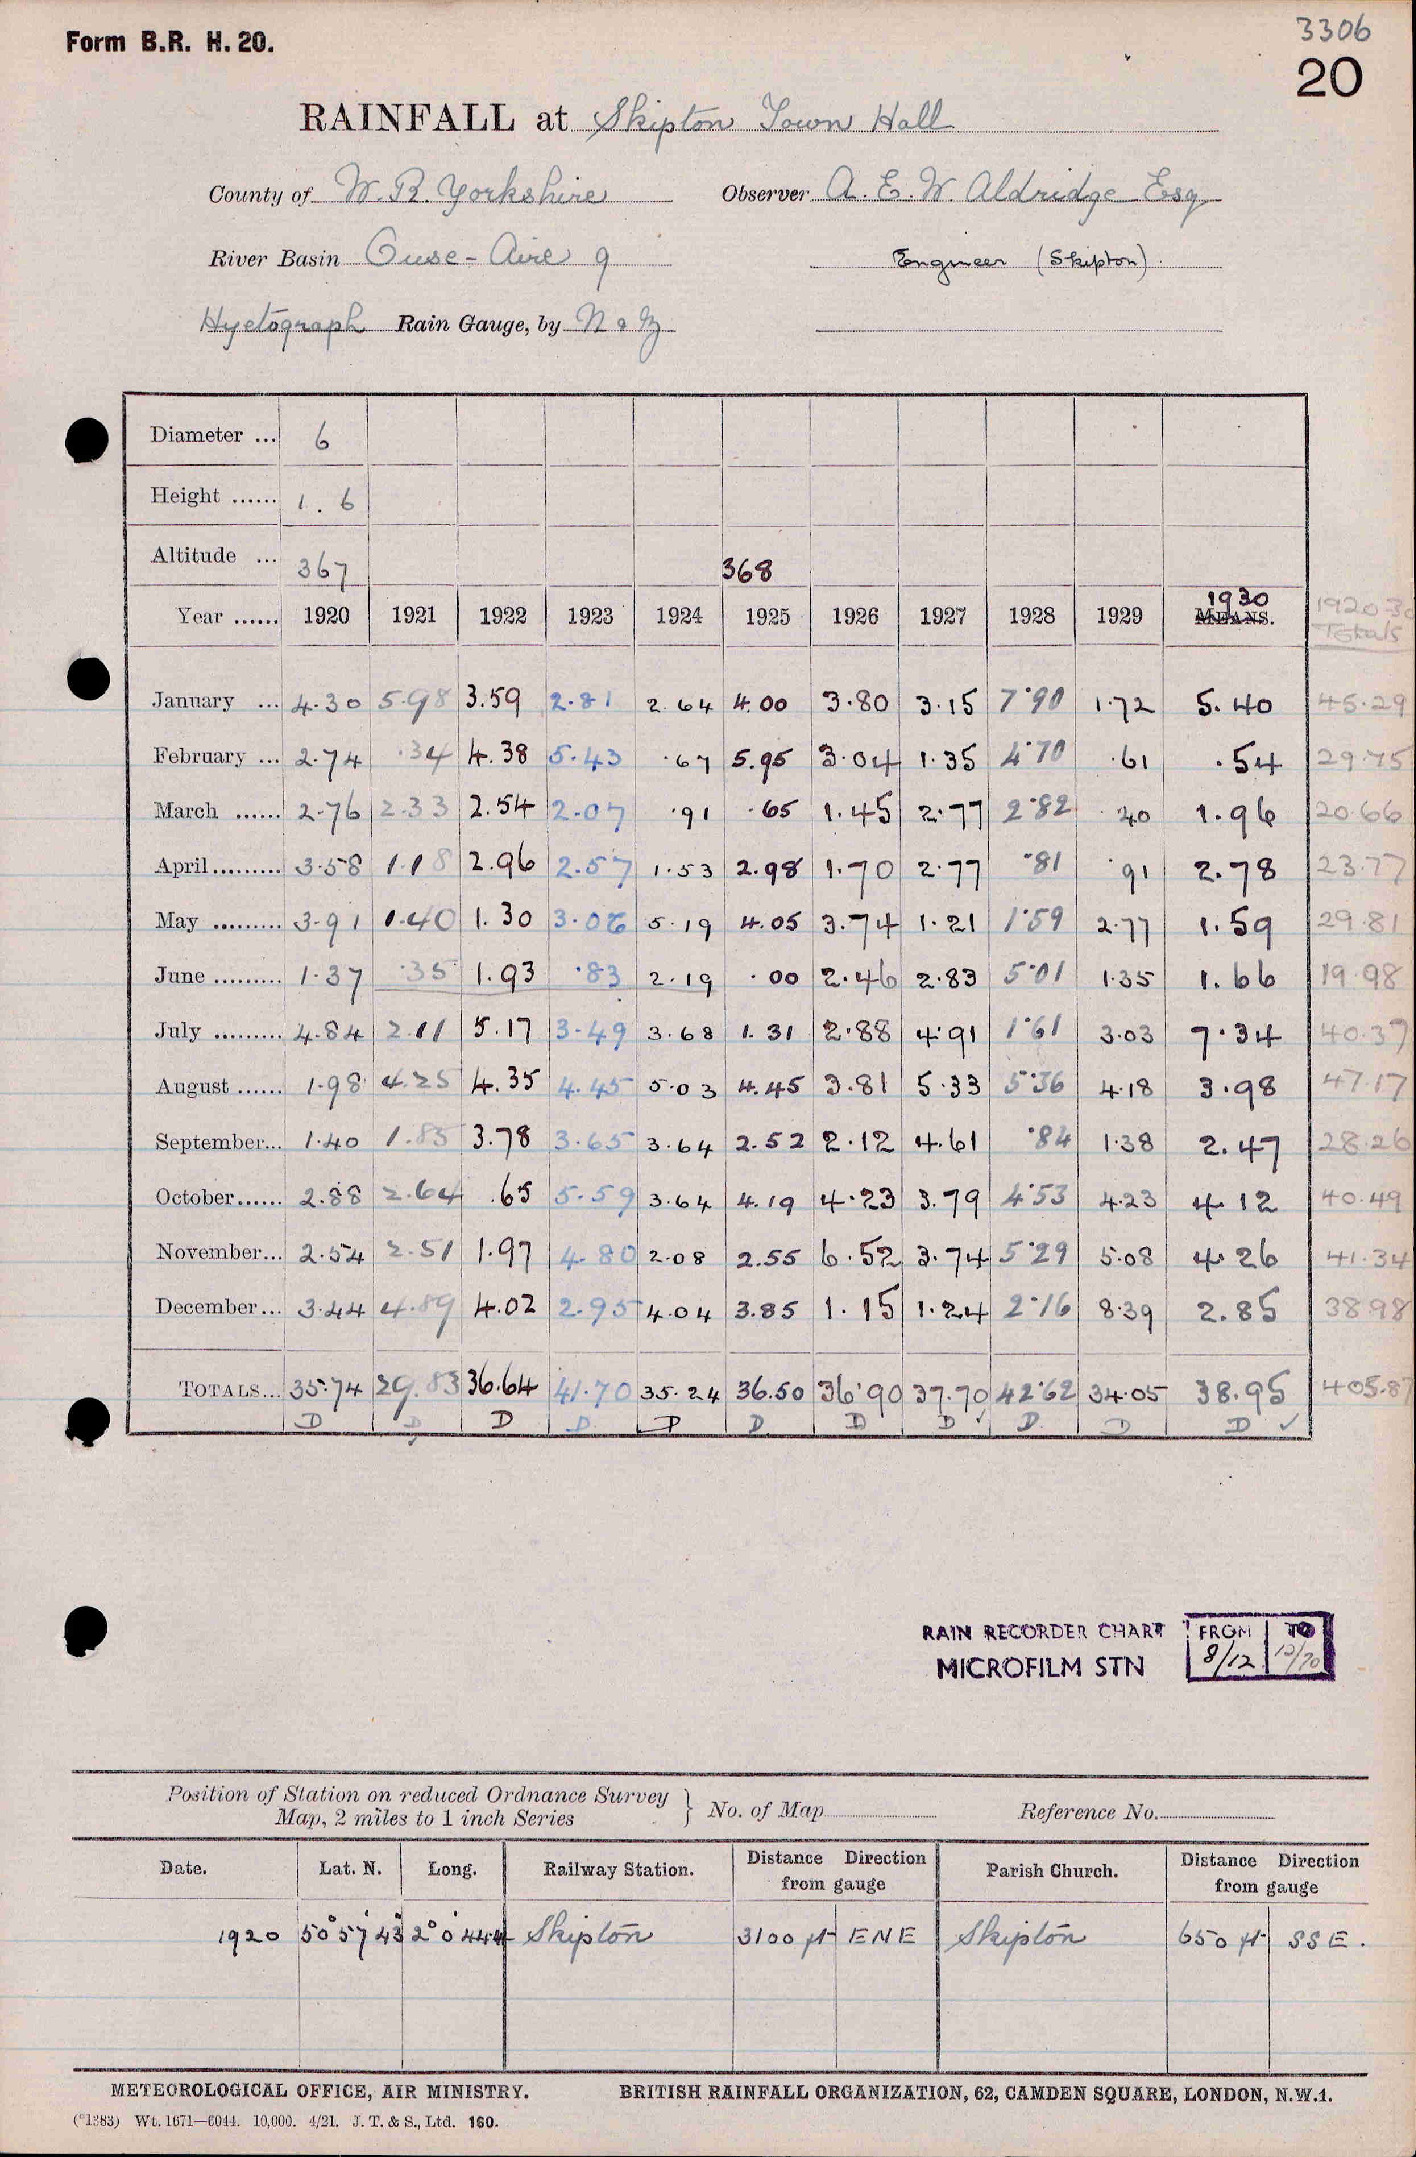 Form B.R. H. 20.
3306
20
RAINFALL at Skipton Town Hall
County of W. R. Yorkshire Observer A. E. W. Aldridge Esq
River Basin Ouse - Aire 9 Engineer (Skipton).
Hyetograph Rain Gauge, by N & Z
Diameter ... 6
Height ...... 1 . 6
Altitude ... 367 368
Year ...... 1920 1921 1922 1923 1924 1925 1926 1927 1928 1929 1930 MEANS. 1920-30 Totals
January ... 4.30 5.98 3.59 2.81 2.64 4.00 3.80 3.15 7.90 1.72 5.40 45.29
February ... 2.74 .34 4.38 5.43 .67 5.95 3.04 1.35 4.70 .61 .54 29.75
March ...... 2.76 2.33 2.54 2.07 .91 .65 1.45 2.77 2.82 .40 1.96 20.66
April ......... 3.58 1.18 2.96 2.57 1.53 2.98 1.70 2.77 .81 .91 2.78 23.77
May ......... 3.91 1.40 1.30 3.06 5.19 4.05 3.74 1.21 1.59 2.77 1.59 29.81
June ......... 1.37 .35 1.93 .83 2.19 .00 2.46 2.83 5.01 1.35 1.66 19.98
July ......... 4.84 2.11 5.17 3.49 3.68 1.31 2.88 4.91 1.61 3.03 7.34 40.37
August ...... 1.98 4.25 4.35 4.45 5.03 4.45 3.81 5.33 5.36 4.18 3.98 47.17
September... 1.40 1.85 3.78 3.65 3.64 2.52 2.12 4.61 .84 1.38 2.47 28.26
October...... 2.88 2.64 .65 5.59 3.64 4.19 4.23 3.79 4.53 4.23 4.12 40.49
November... 2.54 2.51 1.97 4.80 2.08 2.55 6.52 3.74 5.29 5.08 4.26 41.34
December... 3.44 4.89 4.02 2.95 4.04 3.85 1.15 1.24 2.16 8.39 2.85 38.98
TOTALS... 35.74 29.83 36.64 41.70 35.24 36.50 36.90 37.70 42.62 34.05 38.95 405.87
D D D D D D D D ✓ D. D D ✓
RAIN RECORDER CHART FROM TO
MICROFILM STN 8/12 12/70
Position of Station on reduced Ordnance Survey
Map, 2 miles to 1 inch Series } No. of Map Reference No.
Date. Lat. N. Long. Railway Station. Distance Direction from gauge Parish Church. Distance Direction from gauge
1920 50° 57' 43 2° 0' 44 Skipton 3100 ft ENE Skipton 650 ft SSE.
METEOROLOGICAL OFFICE, AIR MINISTRY. BRITISH RAINFALL ORGANIZATION, 62, CAMDEN SQUARE, LONDON, N.W.1.
(*1383) Wt. 1671—6044. 10,000. 4/21. J. T. & S., Ltd. 160.